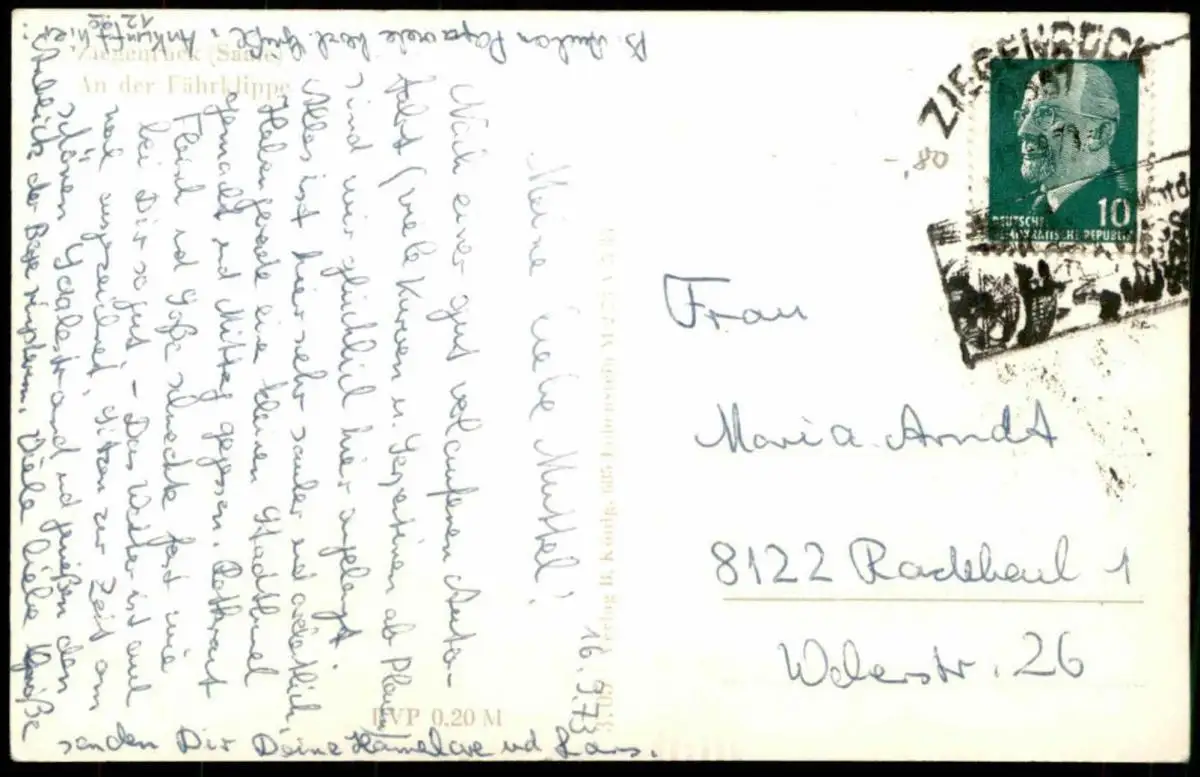 Ziegenrück (Saale)
An der Fährklippe
16.9.73
Meine liebe Muttel!
Nach einer gut verlaufenen Auto-
fahrt (viele Kurven u. Serpentinen ab Plauen)
sind wir glücklich hier angelangt.
Alles ist hier sehr sauber und ordentlich,
Haben gerade eine kleinen Stadtbummel
gemacht und Mittag gegessen. Rotkraut
Fleisch und Soße schmeckte fast wie
bei Dir so gut – Das Wetter ist auch
noch ausgezeichnet, sitzen zur Zeit am
schönen Saalestrand und genießen den
Anblick der Berge ringsherum. Viele liebe Grüße
senden Dir Deine und Lars.
Papa viele herzl. Grüße. Ankunft hier:
12.00
EVP 0,20 M
Verlag B. König, 685 Lobenstein
ZIEGENRÜCK
-.80
DEUTSCHE
DEMOKRATISCHE REPUBLIK
10
Frau
Maria Arndt
8122 Radebeul 1
Weberstr. 26